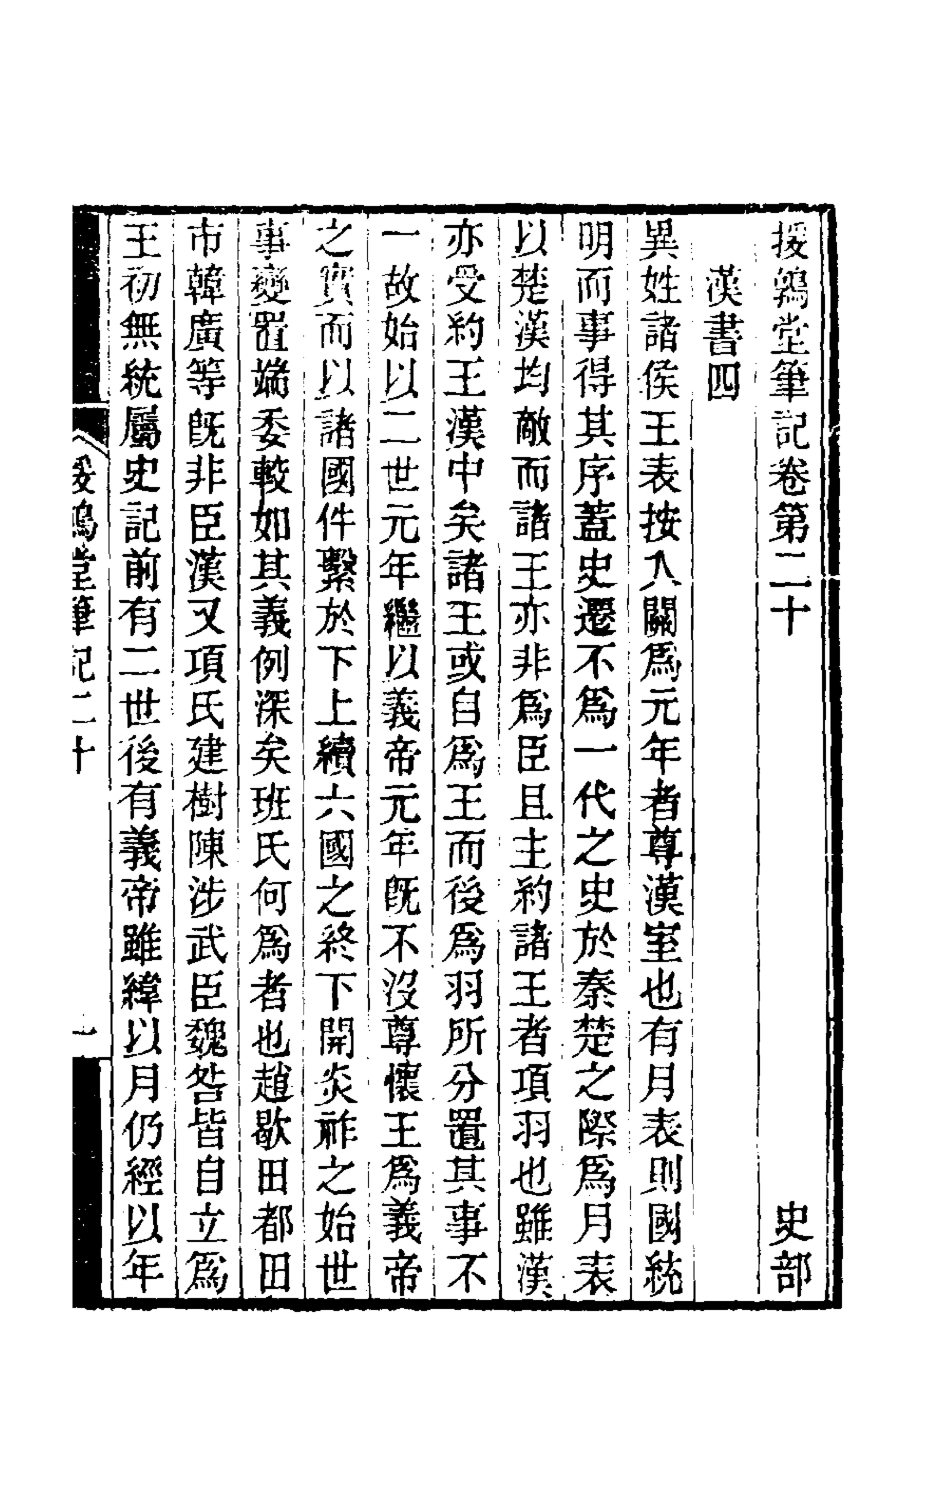 援鶉堂筆記卷第二十　史部
漢書四
異姓諸侯王表按入關爲元年者尊漢室也有月表則國統
明而事得其序蓋史遷不爲一代之史於秦楚之際爲月表
以楚漢均敵而諸王亦非爲臣且主約諸王者項羽也雖漢
亦受約王漢中矣諸王或自爲王而後爲羽所分置其事不
一故始以二世元年繼以義帝元年旣不沒尊懷王爲義帝
之實而以諸國件繫於下上續六國之終下開炎祚之始世
事變置端委較如其義例深矣班氏何爲者也趙歇田都田
市韓廣等旣非臣漢又項氏建樹陳涉武臣魏咎皆自立爲
王初無統屬史記前有二世後有義帝雖緯以月仍經以年
援鶉堂筆記二十
一